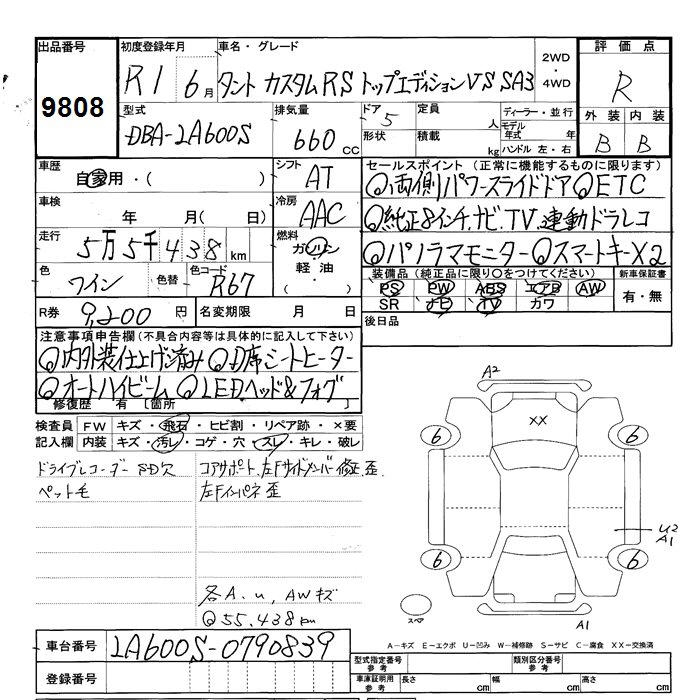 出品番号 初度登録年月 車名・グレード 2WD ・ 4WD 評価点
9808 R1 6月 タント カスタムRS トップエディションVS SA3 R
型式 排気量 ドア 定員 ディーラー・並行 外装 内装
DBA-LA600S 660cc 5 人 モデル年式 年 B B
形状 積載 kg ハンドル 左・右
車歴 シフト セールスポイント(正常に機能するものに限ります)
自家用・( ) AT ◎両側パワースライドドア ◎ETC
車検 冷房 ◎純正8インチナビ.TV.連動ドラレコ
年 月( 日) AAC ◎パノラマモニター ◎スマートキーX2
走行 燃料 装備品(純正品に限り○をつけてください) 新車保証書
5万5千438km ガソリン 軽油・ PS PW ABS エアB AW 有・無
色 色替 色コード SR ナビ TV カワ
ワイン R67 後日品
R券 9,200円 名変期限 月 日
注意事項申告欄(不具合内容等は具体的に記入して下さい)
◎内外装仕上げ済み ◎D席シートヒーター
◎オートハイビーム ◎LEDヘッド&フォグ
修復歴 有 〔箇所 〕
検査員 FW キズ・飛石・ヒビ割・リペア跡・×要
記入欄 内装 キズ・汚レ・コゲ・穴・スレ・キレ・破レ
ドライブレコーダー SD欠 コアサポート.左Fサイドメンバー修正.歪
ペット毛 左Fインパネ歪
各A.u, AWキズ
◎55.438km
A2
XX
6 6
U2
A1
6 6
スペア A1
A-キズ E-エクボ U-凹み W-補修跡 S-サビ C-腐食 XX-交換済
車台番号 LA600S-0790839 型式指定番号 参考 類別区分番号 参考
登録番号 車庫証明用 参考 長さ cm 幅 cm 高さ cm